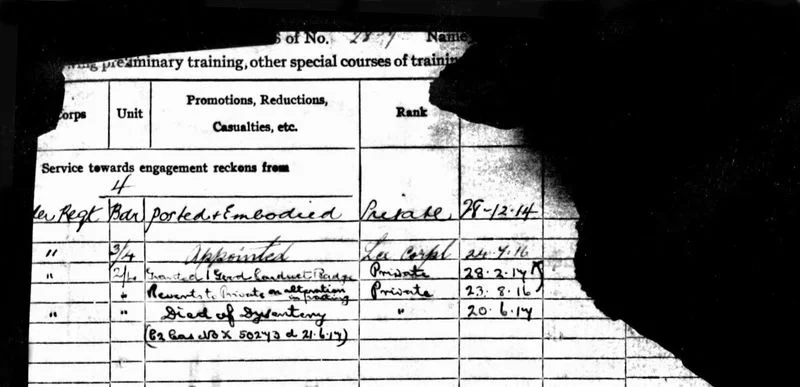 S of No. Name
preliminary training, other special courses of training
Corps Unit Promotions, Reductions, Rank
Casualties, etc.
Service towards engagement reckons from
4
Regt Bdr Posted & Embodied Private 28-12-14
" 3/4 Appointed Lce Corpl 24.7.16
" 2/4 Granted 1 Good Conduct Badge Private 28.2.17
" Reverts to Private on alteration Private 23.8.16
in posting
" " Died of Dysentery " 20.6.17
d 21.6.17)